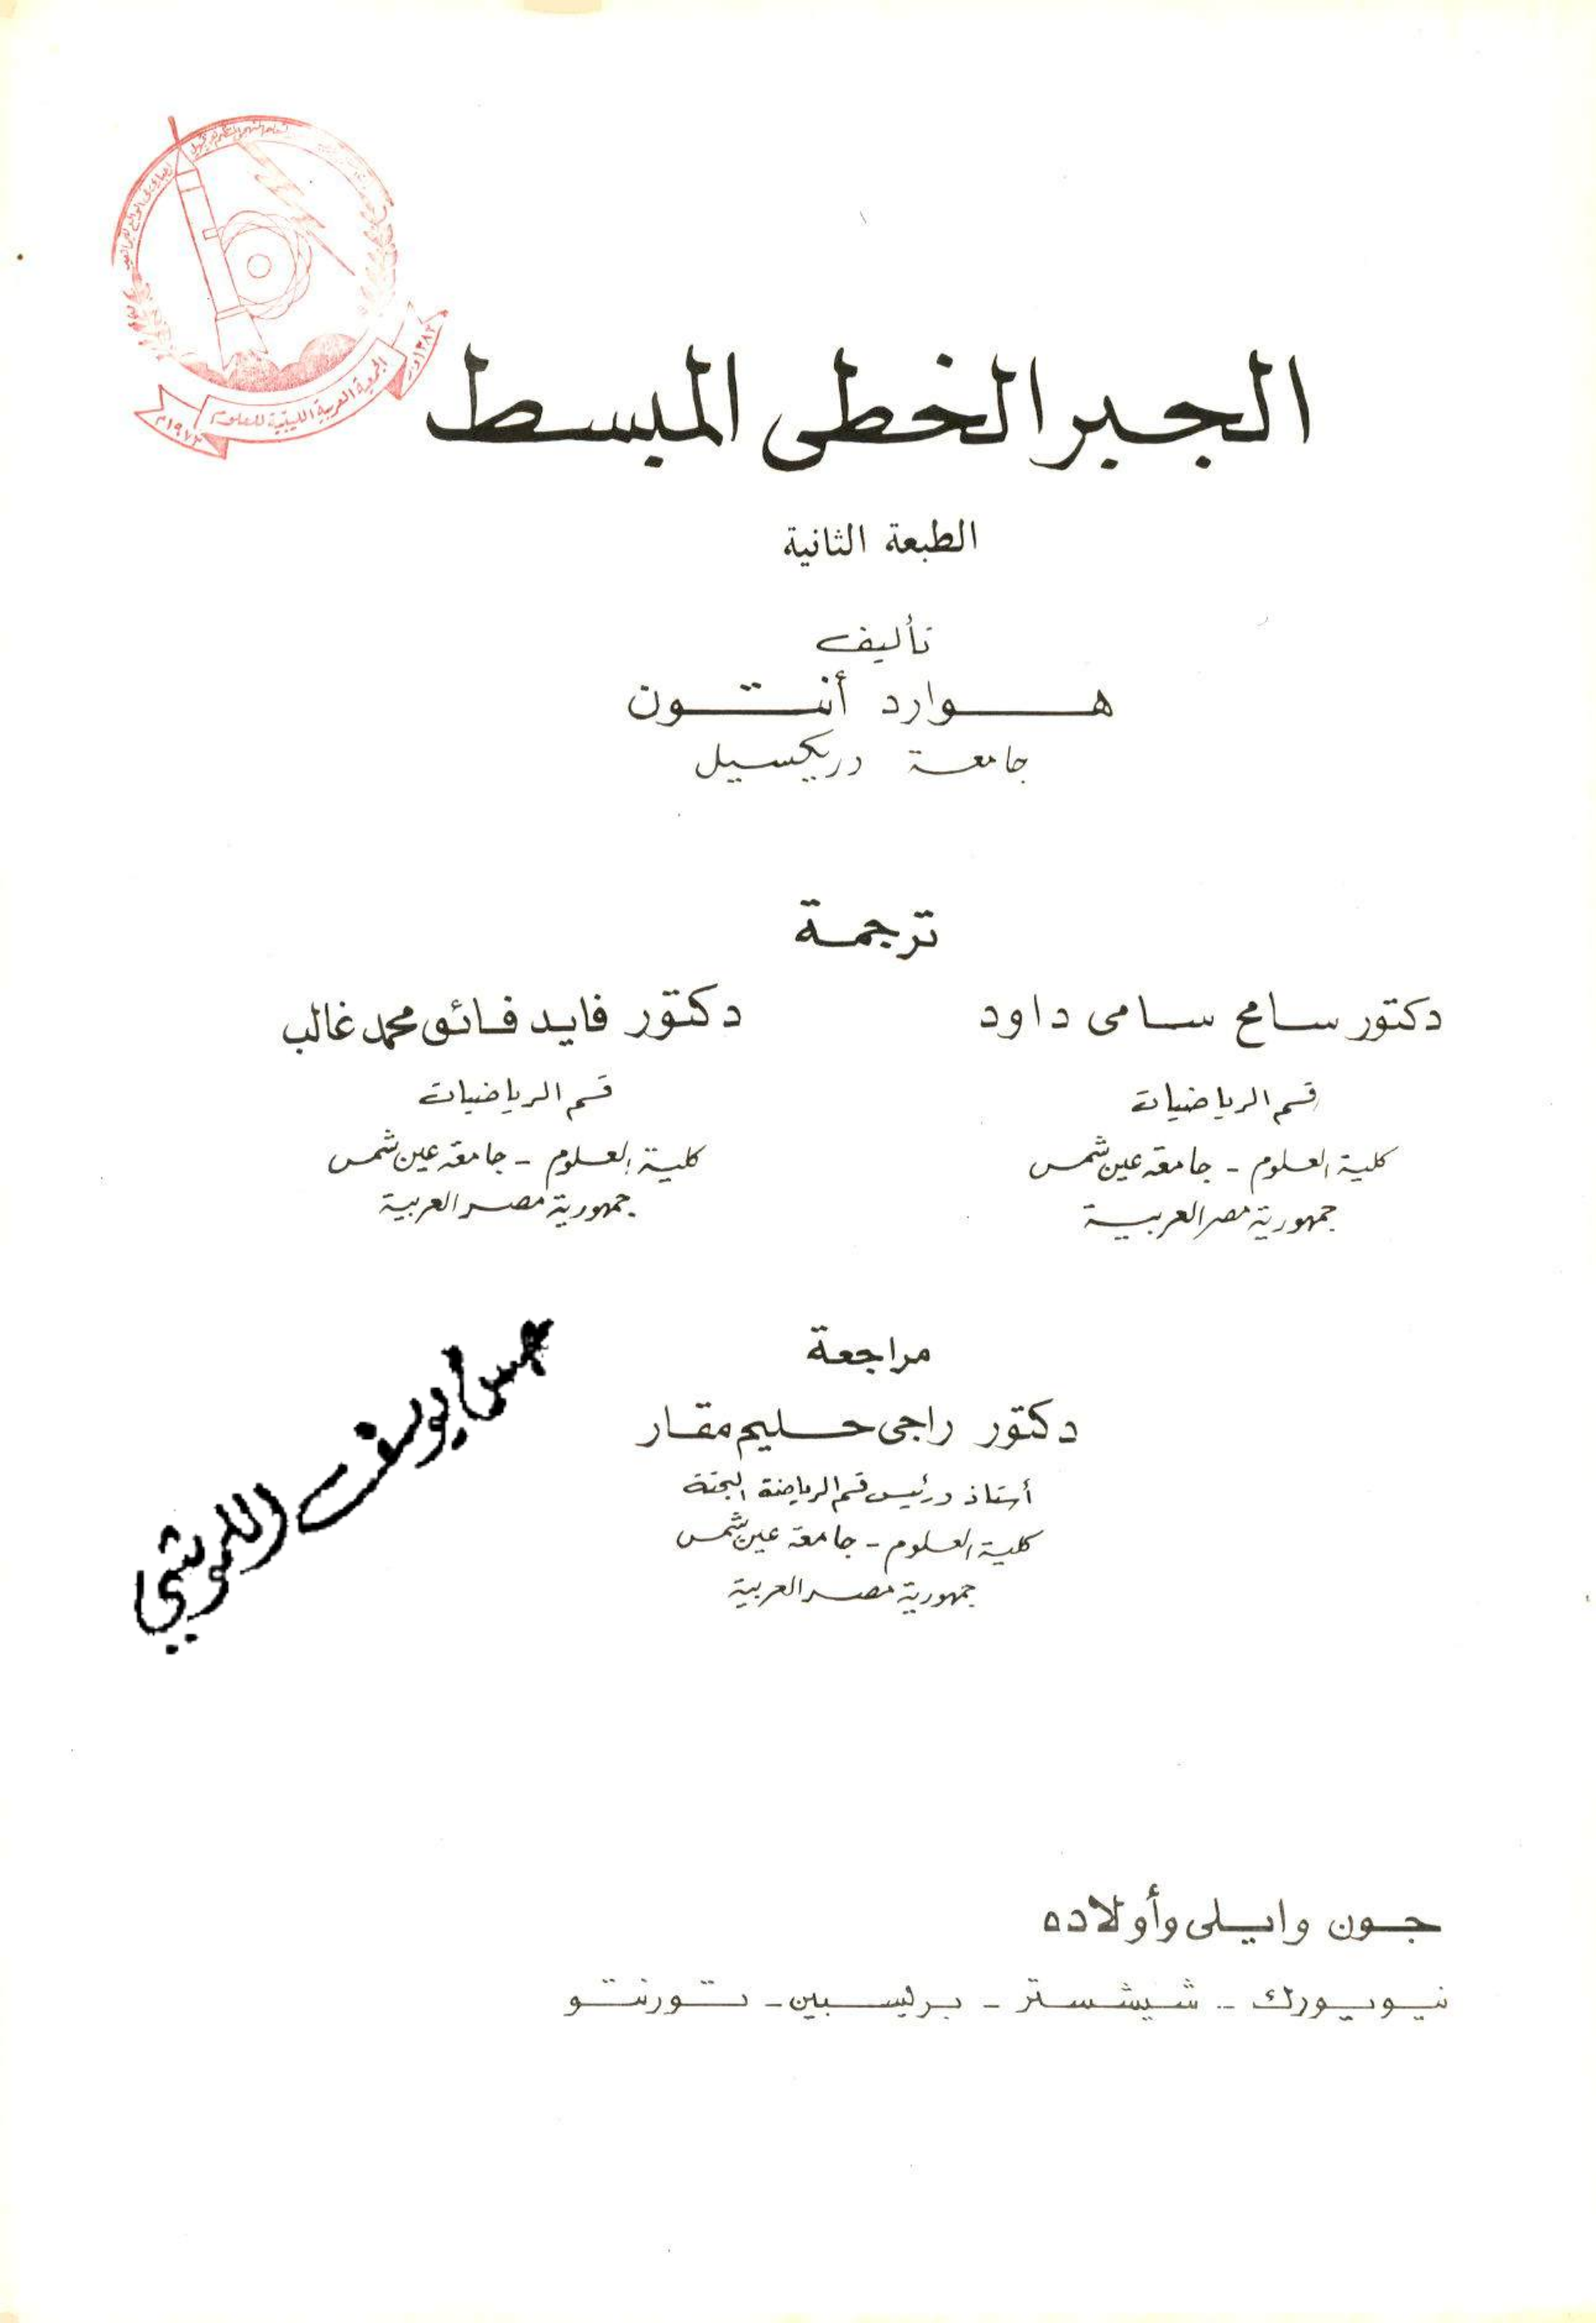 الجمعية العربية الليبية للعلوم
١٣٨٢ و.ر
١٩٧٣م
الجبر الخطى المبسط
الطبعة الثانية
تأليف
هوارد أنتون
جامعة دريكسيل
ترجمة
دكتور سامح سامى داود
قسم الرياضيات
كلية العلوم - جامعة عين شمس
جمهورية مصر العربية
دكتور فايد فائق محمد غالب
قسم الرياضيات
كلية العلوم - جامعة عين شمس
جمهورية مصر العربية
مراجعة
دكتور راجى حليم مقار
أستاذ ورئيس قسم الرياضة البحتة
كلية العلوم - جامعة عين شمس
جمهورية مصر العربية
يوسف
جون وايلى وأولاده
نيويورك - شيشستر - برليسبين - تورنتو